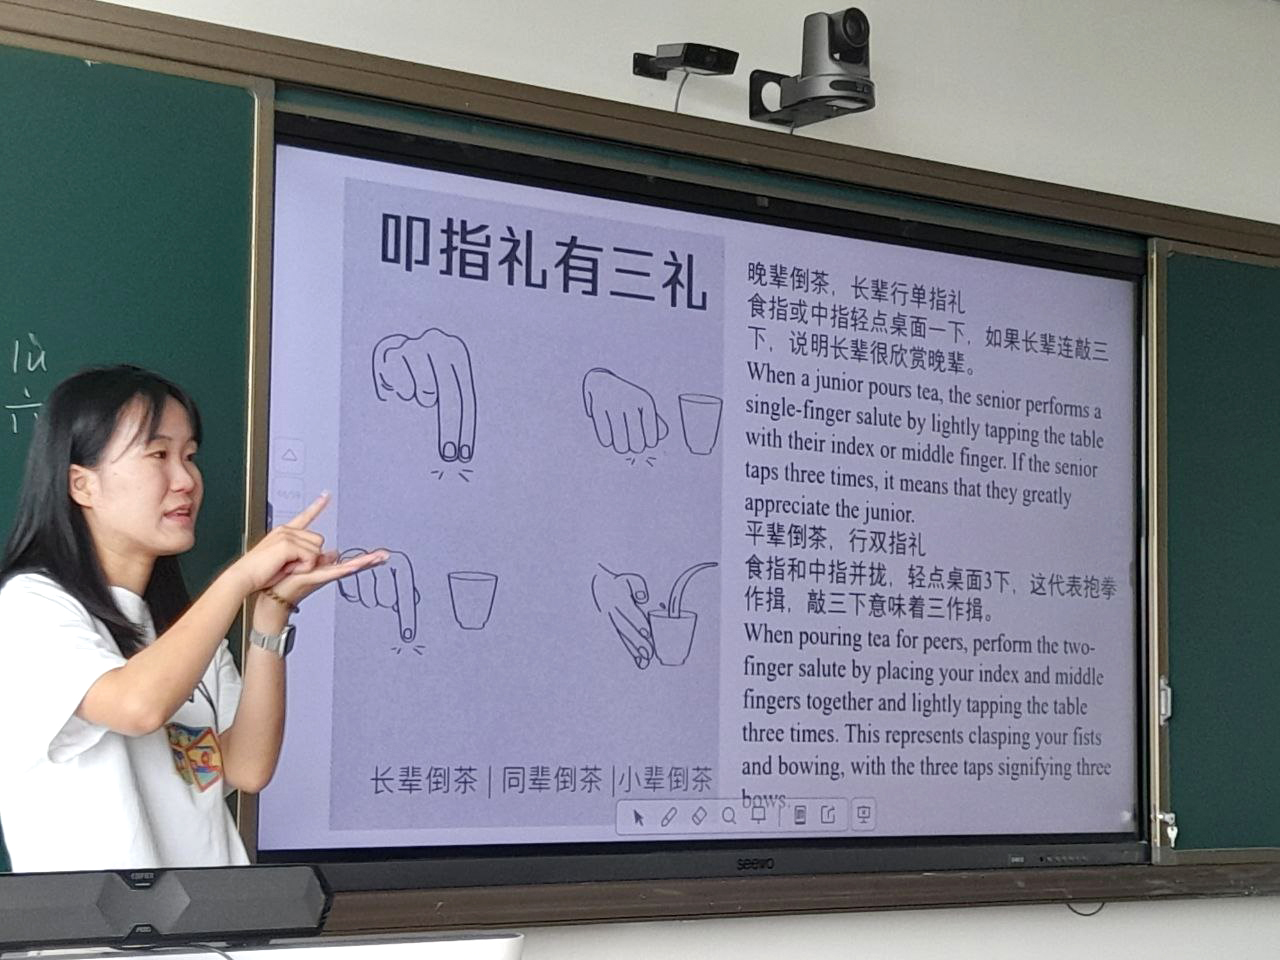 叩指礼有三礼
长辈倒茶 | 同辈倒茶 | 小辈倒茶
晚辈倒茶，长辈行单指礼
食指或中指轻点桌面一下，如果长辈连敲三
下，说明长辈很欣赏晚辈。
When a junior pours tea, the senior performs a
single-finger salute by lightly tapping the table
with their index or middle finger. If the senior
taps three times, it means that they greatly
appreciate the junior.
平辈倒茶，行双指礼
食指和中指并拢，轻点桌面3下，这代表抱拳
作揖，敲三下意味着三作揖。
When pouring tea for peers, perform the two-
finger salute by placing your index and middle
fingers together and lightly tapping the table
three times. This represents clasping your fists
and bowing, with the three taps signifying three
bows.
seewo
EDIFIER